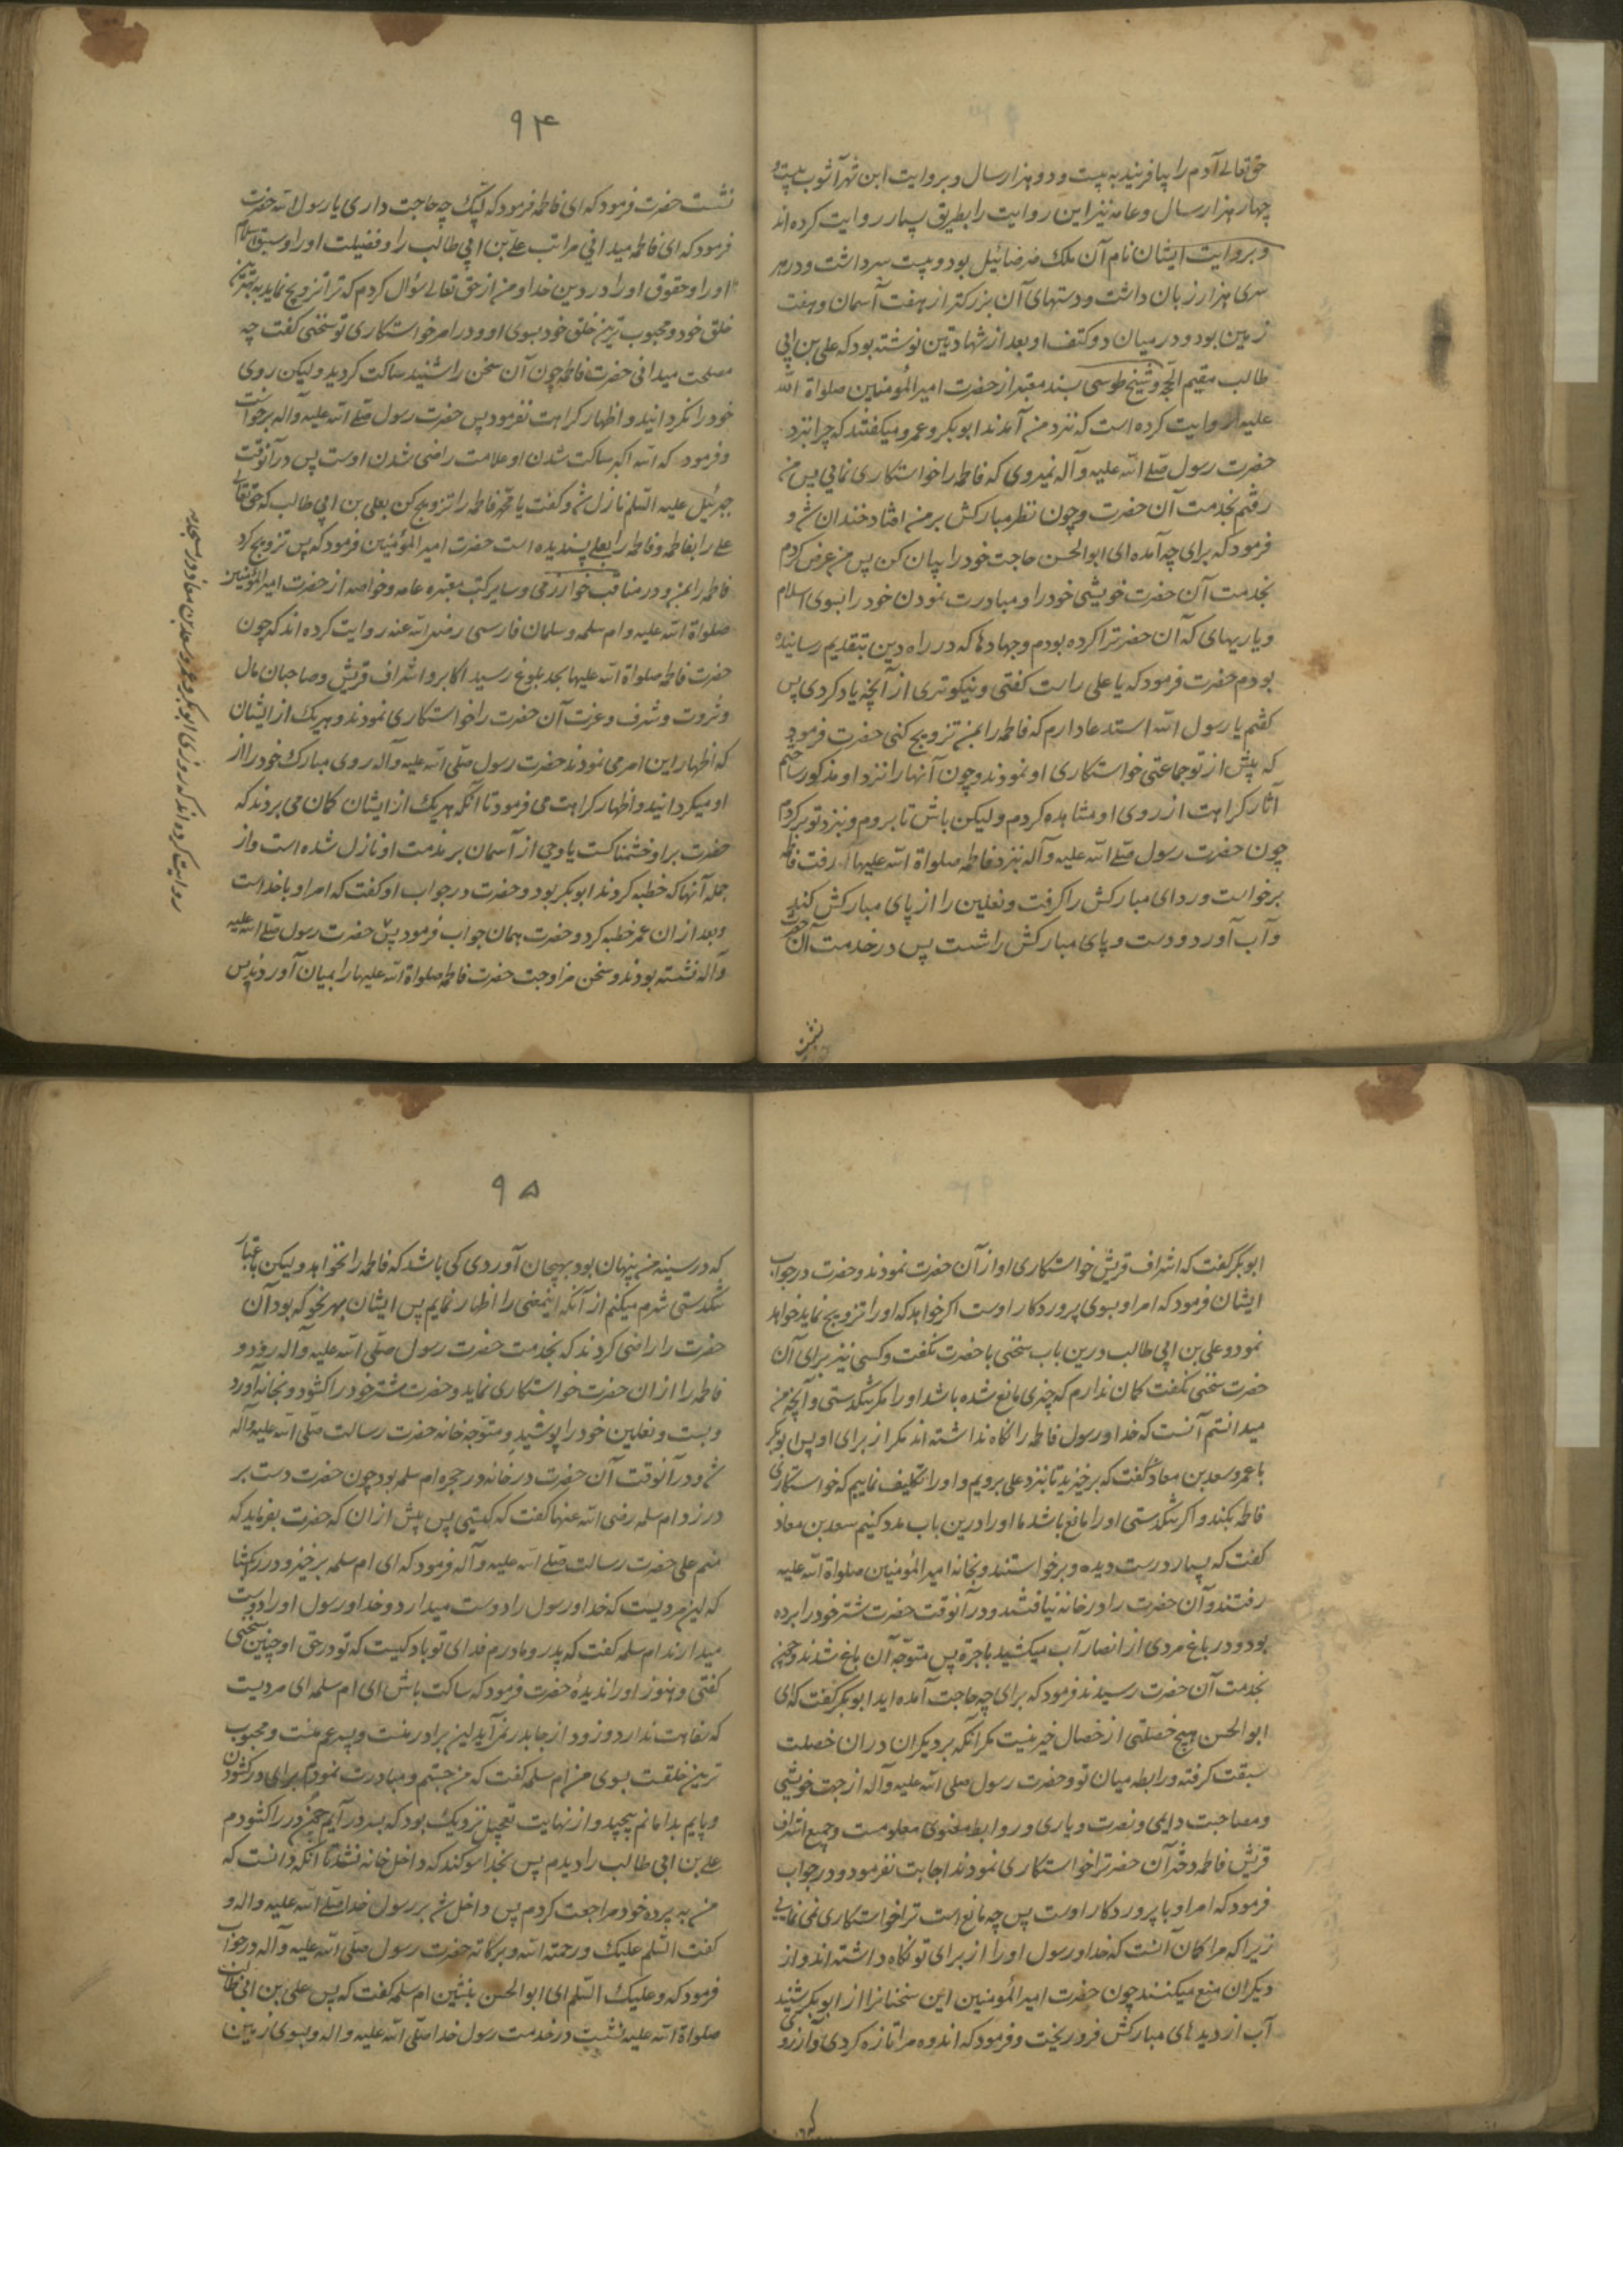 حق تعالی آدم را بیافریند به بیست و دو هزار سال و بروایت ابن شهر آشوب بیست و
چهار هزار سال و عامه نیز این روایت را بطریق بسیار روایت کرده اند
و بروایت ایشان نام آن ملک صرصائیل بود و بیست سر داشت و در هر
سری هزار زبان داشت و دستهای آن بزرکتر از هفت آسمان و هفت
زمین بود و در میان دو کتف او بعد از شهادتین نوشته بود که علی بن ابی
طالب مقیم الحجة و شیخ طوسی بسند معتبر از حضرت امیر المؤمنین صلواة الله
علیه روایت کرده است که نزد من آمدند ابوبکر و عمر و میکفتند که چرا بنزد
حضرت رسول صلی الله علیه و آله نمیروی که فاطمه را خواستکاری نمائی پس من
رفتم بخدمت آن حضرت و چون نظر مبارکش بر من افتاد خندان شد و
فرمود که برای چه آمده ای ابو الحسن حاجت خود را بیان کن پس من عرض کردم
بخدمت آن حضرت خویشی خود را و مبادرت نمودن خود را بسوی اسلام
و یاریهای که آن حضرترا کرده بودم و جهادها که در راه دین بتقدیم رسانیده
بودم حضرت فرمود که یا علی راست کفتی و نیکوتری از آنچه یاد کردی پس
کفتم یا رسول الله استدعا دارم که فاطمه را بمن تزویج کنی حضرت فرمود
که پیش از تو جماعتی خواستکاری او نمودند و چون آنها را نزد او مذکور ساختم
آثار کراهت از روی او مشاهده کردم و لیکن باش تا بروم و بنزد تو برکردم
چون حضرت رسول صلی الله علیه و آله بنزد فاطمه صلواة الله علیها رفت فاطمه
برخواست و ردای مبارکش را کرفت و نعلین را از پای مبارکش کند
و آب آورد و دست و پای مبارکش را شست پس در خدمت آن حضرت
نشست
۹۴
نشست حضرت فرمود که ای فاطمه فرمود که لبیک چه حاجت داری یا رسول الله حضرت
فرمود که ای فاطمه میدانی مراتب علی بن ابی طالب را و فضیلت او را و سبق اسلام
او را و حقوق او را در دین خدا و من از حق تعالی سؤال کردم که ترا تزویج نماید به بهترین
خلق خود و محبوب ترین خلق خود بسوی او و در امر خواستکاری تو سخنی کفت چه
مصلحت میدانی حضرت فاطمه چون آن سخن را شنید ساکت کردید و لیکن روی
خود را نکردانید و اظهار کراهت نفرمود پس حضرت رسول صلی الله علیه و آله برخواست
و فرمود که الله اکبر ساکت شدن او علامت راضی شدن اوست پس در آنوقت
جبرئیل علیه السلم نازل شد و کفت یا محمد فاطمه را تزویج کن بعلی بن ابی طالب که حق تعالی
علی را بفاطمه و فاطمه را بعلی پسندیده است حضرت امیر المؤمنین فرمود که پس تزویج کرد
فاطمه را بمن و در مناقب خوارزمی و سایر کتب معتبره عامه و خاصه از حضرت امیر المؤمنین
صلواة الله علیه و ام سلمه و سلمان فارسی رضی الله عنه روایت کرده اند که چون
حضرت فاطمه صلواة الله علیها بحد بلوغ رسید اکابر و اشراف قریش و صاحبان مال
و ثروت و شرف و عزت آن حضرت را خواستکاری نمودند و هر یک از ایشان
که اظهار این امر می نمودند حضرت رسول صلی الله علیه و آله روی مبارک خود را از
او میکردانید و اظهار کراهت می فرمود تا آنکه هر یک از ایشان کمان می بردند که
حضرت بر او خشمناکست یا وحی از آسمان بر مذمت او نازل شده است و از
جمله آنها که خطبه کردند ابوبکر بود و حضرت در جواب او کفت که امر او با خداست
و بعد از ان عمر خطبه کرد و حضرت همان جواب فرمود پس حضرت رسول صلی الله علیه
و آله نشسته بودند و سخن مزاوجت حضرت فاطمه صلواة الله علیها را بمیان آوردند پس
روایت کرده اند که روزی ابوبکر و عمر و سعد بن معاذ در مسجد
ابوبکر کفت که اشراف قریش خواستکاری او از آن حضرت نمودند و حضرت در جواب
ایشان فرمود که امر او بسوی پروردکار اوست اکر خواهد که او را تزویج نماید خواهد
نمود و علی بن ابی طالب درین باب سخنی با حضرت نکفت و کسی نیز برای آن
حضرت سخنی نکفت کمان ندارم که چیزی مانع شده باشد او را مکر تنکدستی و آنچه من
میدانم آنست که خدا و رسول فاطمه را نکاه نداشته اند مکر از برای او پس ابوبکر
با عمر و سعد بن معاذ کفت که برخیزید تا بنزد علی برویم و او را تکلیف نماییم که خواستکاری
فاطمه بکند و اکر تنکدستی او را مانع باشد ما او را درین باب مدد کنیم سعد بن معاذ
کفت که بسیار درست دیده و برخواستند و بخانه امیر المؤمنین صلواة الله علیه
رفتند و آن حضرت را در خانه نیافتند و در آنوقت حضرت شتر خود را برده
بود و در باغ مردی از انصار آب میکشید باجرة پس متوجه آن باغ شدند و چون
بخدمت آن حضرت رسیدند فرمود که برای چه حاجت آمده اید ابوبکر کفت که ای
ابو الحسن هیچ خصلتی از خصال خیر نیست مکر آنکه بر دیکران در ان خصلت
سبقت کرفته و رابطه میان تو و حضرت رسول صلی الله علیه و آله از جهت خویشی
و مصاحبت دایمی و نصرت و یاری و روابط معنوی معلومست و جمیع اشراف
قریش فاطمه دختر آن حضرترا خواستکاری نمودند اجابت نفرمود و در جواب
فرمود که امر او با پروردکار اوست پس چه مانع است ترا خواستکاری نمی نمایی
زیرا که مرا کمان آنست که خدا و رسول او را از برای تو نکاه داشته اند و از
دیکران منع میکنند چون حضرت امیر المؤمنین این سخنانرا از ابوبکر شنید
آب از دیدهای مبارکش فرو ریخت و فرمود که اندوه مرا تازه کردی و آرزوی
که در
۹۵
که در سینه من پنهان بود بهیجان آوردی کی باشد که فاطمه را نخواهد و لیکن باعتبار
تنکدستی شرم میکنم از آنکه اینمعنی را اظهار نمایم پس ایشان بهر نحو که بود آن
حضرت را راضی کردند که بخدمت حضرت رسول صلی الله علیه و آله رود و
فاطمه را از ان حضرت خواستکاری نماید و حضرت شتر خود را کشود و بخانه آورد
و بست و نعلین خود را پوشید و متوجه خانه حضرت رسالت صلی الله علیه و آله
شد و در آنوقت آن حضرت در خانه در حجره ام سلمه بود چون حضرت دست بر
در زد ام سلمه رضی الله عنها کفت که کیستی پس پیش از ان که حضرت بفرماید که
منم علی حضرت رسالت صلی الله علیه و آله فرمود که ای ام سلمه برخیز و در را بکشا
که این مردیست که خدا و رسول را دوست میدارد و خدا و رسول او را دوست
میدارند ام سلمه کفت که پدر و مادرم فدای تو باد کیست که تو در حق او چنین سخنی
کفتی و هنوز او را ندیدۀ حضرت فرمود که ساکت باش ای ام سلمه ای مردیست
که سفاهت ندارد و زود از جا بدر نمی آید این برادر منست و پسر عم منست و محبوب
ترین خلقست بسوی من ام سلمه کفت که من جستم و مبادرت نمودم برای در کشودن
و پایم بدامانم پیچید و از نهایت تعجیل نزدیک بود که بسر در آیم چون در را کشودم
علی بن ابی طالب را دیدم پس بخدا سوکند که داخل خانه نشد تا آنکه دانست که
من به پرده خود مراجعت کردم پس داخل شد بر رسول خدا صلی الله علیه و اله و
کفت السلم علیک و رحمة الله و برکاته حضرت رسول صلی الله علیه و آله در جواب
فرمود که و علیک السلم ای ابو الحسن بنشین ام سلمه کفت که پس علی بن ابی طالب
صلواة الله علیه نشست در خدمت رسول خدا صلی الله علیه و اله و بسوی زمین